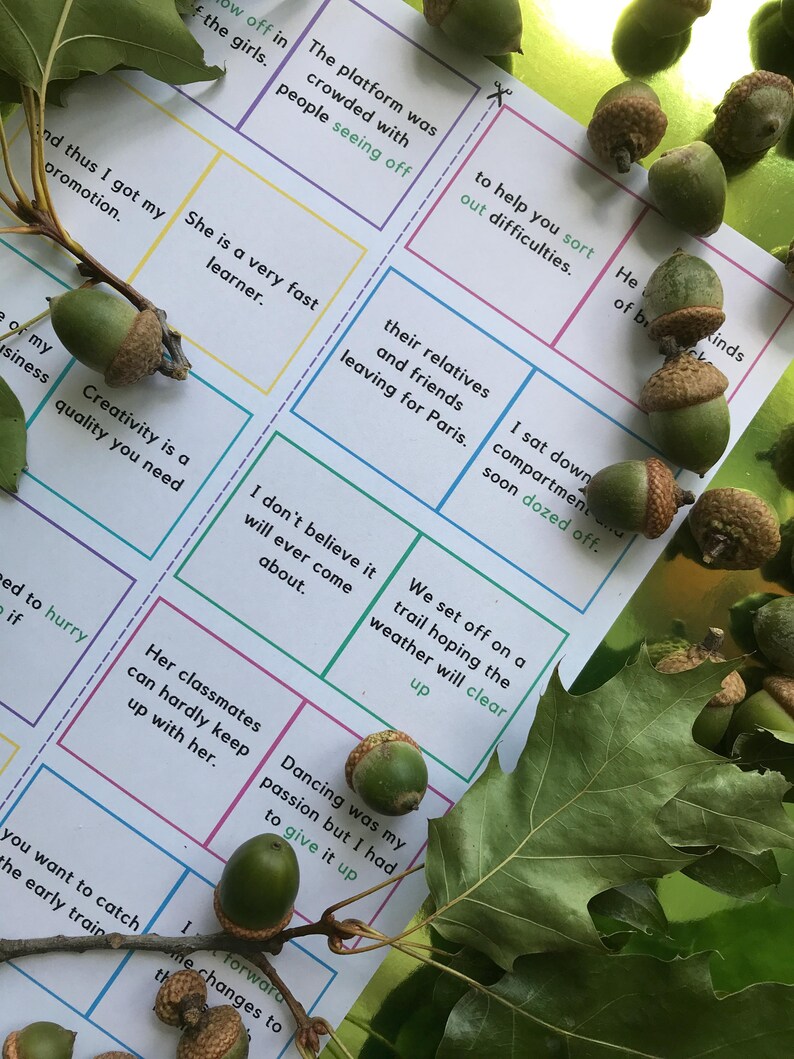 off in
the girls.
The platform was
crowded with
people seeing off
to help you sort
out difficulties.
He
of
kinds
thus I got my
promotion.
She is a very fast
learner.
their relatives
and friends
leaving for Paris.
I sat down
compartment and
soon dozed off.
of my
business
Creativity is a
quality you need
I don't believe it
will ever come
about.
We set off on a
trail hoping the
weather will clear
up
to hurry
if
Her classmates
can hardly keep
up with her.
Dancing was my
passion but I had
to give it up
you want to catch
the early train.
I
forward
changes to